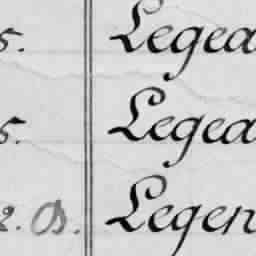 5. Legea
5. Legea
2. B. Legen